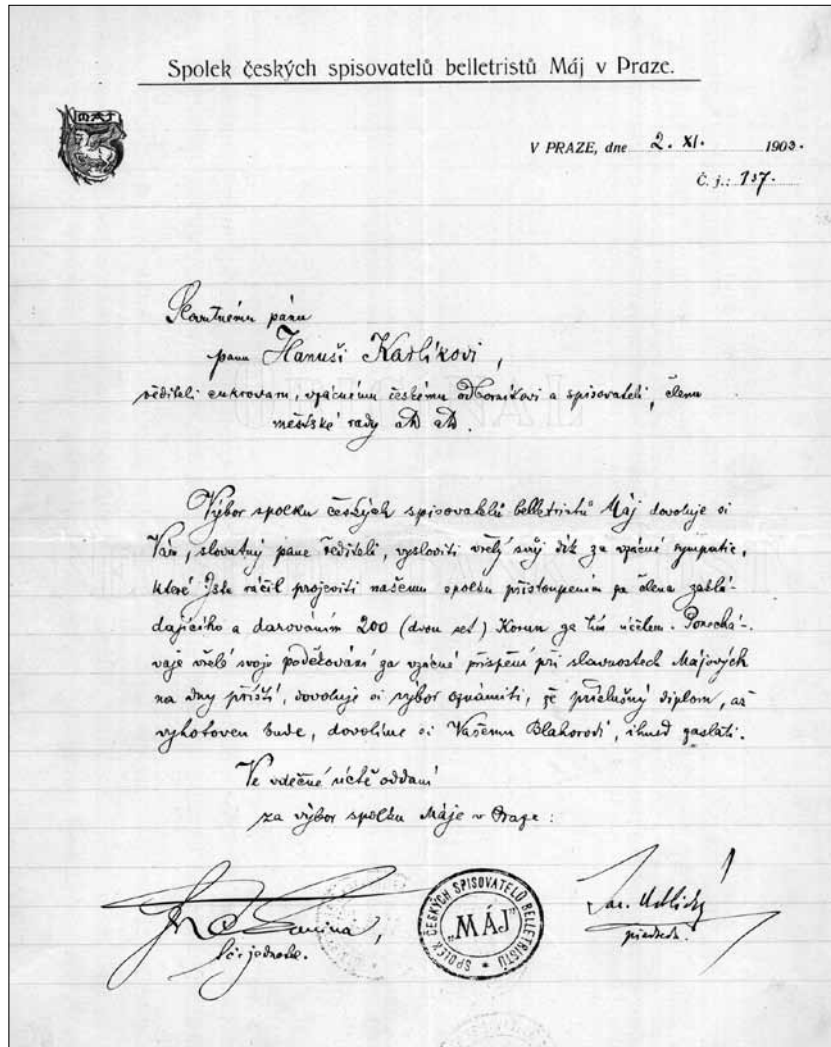 Spolek českých spisovatelů belletristů Máj v Praze.
MÁJ
V PRAZE, dne 2. XI. 1903.
Č. j.: 137.
Slovutnému pánu
panu Hanuši Karlíkovi,
řediteli cukrovaru, vzácnému českému odborníkovi a spisovateli, členu
městské rady atd atd.
Výbor spolku českých spisovatelů belletristů Máj dovoluje si
Vám, slovutný pane řediteli, vysloviti vřelý svůj dík za vzácné sympatie,
které jste ráčil projeviti našemu spolku přistoupením za člena zaklá-
dajícího a darováním 200 (dvou set) Korun za tím účelem. Ponechá-
vaje vřelé svoje poděkování za vzácné přispění při slavnostech Májových
na dny příští, dovoluje si výbor oznámiti, že příslušný diplom, až
vyhotoven bude, dovolíme si Vašemu Blahorodí, ihned zaslati.
Ve vděčné úctě oddaní
za výbor spolku Máje v Praze:
jednatel.
SPOLEK ČESKÝCH SPISOVATELŮ BELLETRISTŮ
„MÁJ"
Jar. Vrchlický
předseda.